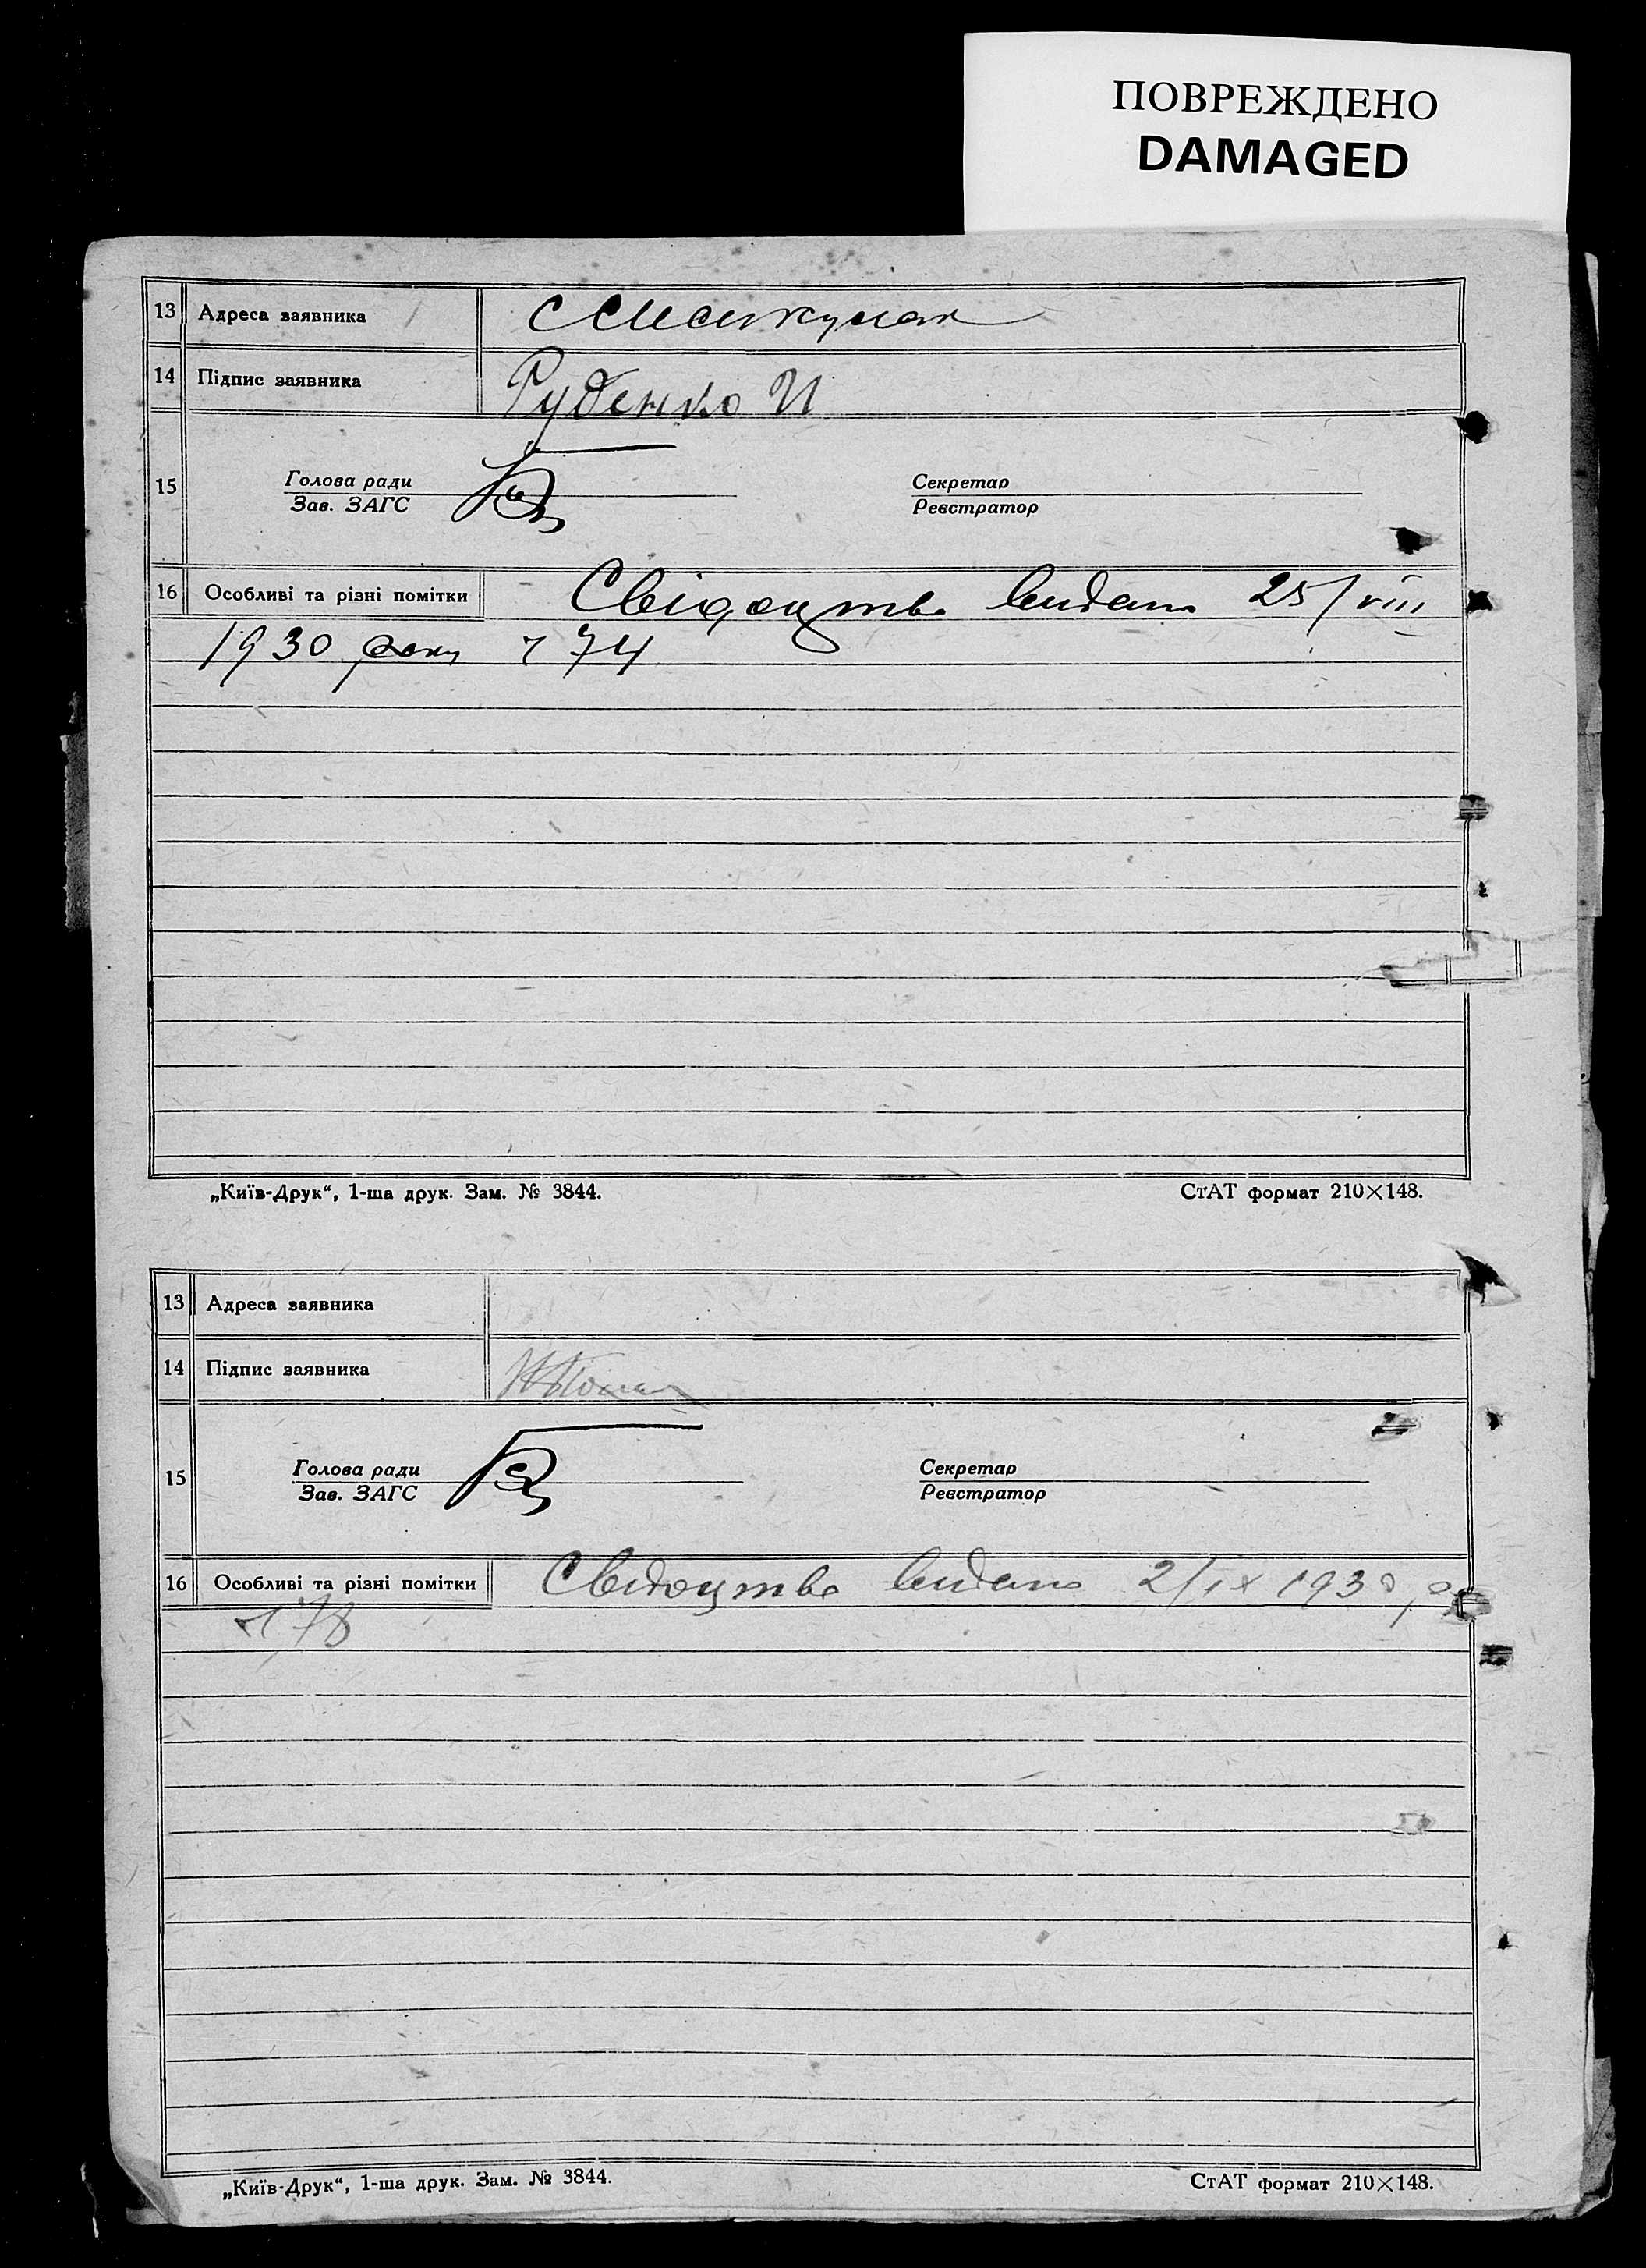 ПОВРЕЖДЕНО
DAMAGED
13 Адреса заявника с
14 Підпис заявника Руденко И
15 Голова ради Секретар
Зав. ЗАГС Реєстратор
16 Особливі та різні помітки Свідоцтво видано 25/VIII
1930 року ч 74
„Київ-Друк“, 1-ша друк. Зам. № 3844. СтАТ формат 210×148.
13 Адреса заявника
14 Підпис заявника
15 Голова ради Секретар
Зав. ЗАГС Реєстратор
16 Особливі та різні помітки Свідоцтво видано 2/IX 1930 р
ч 78
„Київ-Друк“, 1-ша друк. Зам. № 3844. СтАТ формат 210×148.